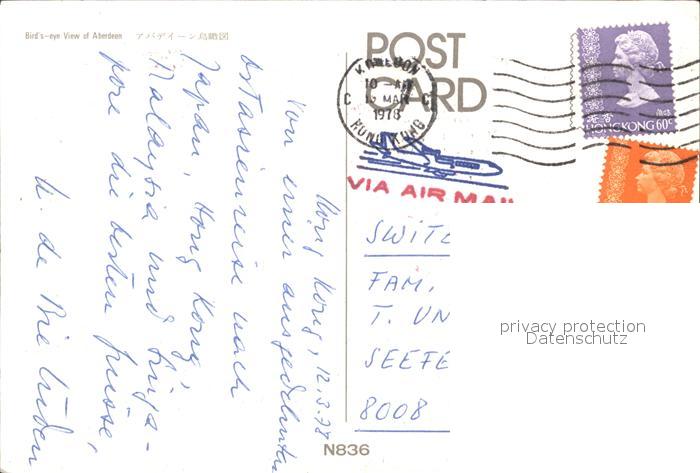 Bird's-eye View of Aberdeen アバディーン鳥瞰図
POST
CARD
KOWLOON
10 - AM
12 MAR
1978
HONG KONG
香港
HONG KONG 60c
VIA AIR MAIL
Hong Kong, 12.3.78
Von einer ausgedehnten
Ostasienreise nach
Japan, Hong Kong,
Malaysia und Singa-
pore die besten Grüsse,
U. de Bie Lüden
SWITZ
FAM.
T. UN
SEEFE
8008
privacy protection
Datenschutz
N836